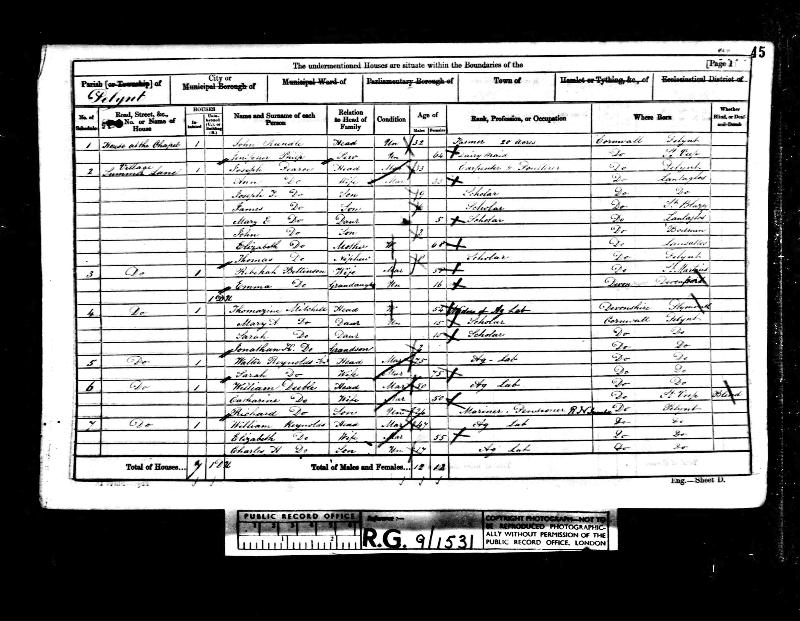 45
The undermentioned Houses are situate within the Boundaries of the
[Page 1
Parish [or Township] of
City or Municipal Borough of
Municipal Ward of
Parliamentary Borough of
Town of
Hamlet or Tything, &c., of
Ecclesiastical District of
Pelynt
No. of Schedule
Road, Street, &c., and No. or Name of House
HOUSES
Name and Surname of each Person
Relation to Head of Family
Condition
Age of
Males Females
Rank, Profession, or Occupation
Where Born
Whether Blind, or Deaf-and-Dumb
1 House at the Chapel 1 John Head Un 32 Farmer 20 acres Cornwall Pelynt
Serv Un 64 Dairy Maid Do St Veep
2 Village Summer Lane 1 Joseph Pearce Head Mar 33 Carpenter & Do Pelynt
Ann Do Wife Mar Do Lanteglos
Joseph Do Son 9 Scholar Do Do
James Do Son Scholar Do St Blazey
Mary E Do Daur 5 Scholar Do Lanteglos
John Do Son Do Bodmin
Elizabeth Do Mother W Do Lansallos
Thomas Do Nephew Scholar Do Pelynt
3 Do 1 Rebekah Bettinson Wife Mar Do St Martins
Emma Do Grandaughr Un 16 Devon Devonport
4 Do 1 Thomazine Mitchell Head W 54 Widow of Ag Lab Devonshire Plymouth
Mary A Do Daur Un 15 Scholar Cornwall Pelynt
Sarah Do Daur 10 Scholar Do Do
Jonathan H. Do Grandson 2 Do Do
5 Do 1 Walter Reynolds Head Mar 75 Ag - Lab Do Do
Sarah Do Wife Mar 75 Do Do
6 Do 1 William Head Mar Ag Lab Do Do
Catharine Do Wife Mar 50 Do St Veep Blind
Richard Do Son Un Mariner Pensioner Do Pelynt
7 Do 1 William Reynolds Head Mar 47 Ag Lab Do Do
Elizabeth Do Wife Mar 55 Do Do
Charles H Do Son Un 17 Ag Lab Do Do
Total of Houses... 7 1 B U Total of Males and Females... 12 12
Eng.—Sheet D.
PUBLIC RECORD OFFICE
1 2 3 4 5 6
1 2
Reference :—
R.G. 9/1531
COPYRIGHT PHOTOGRAPH—NOT TO
BE REPRODUCED PHOTOGRAPHIC-
ALLY WITHOUT PERMISSION OF THE
PUBLIC RECORD OFFICE, LONDON